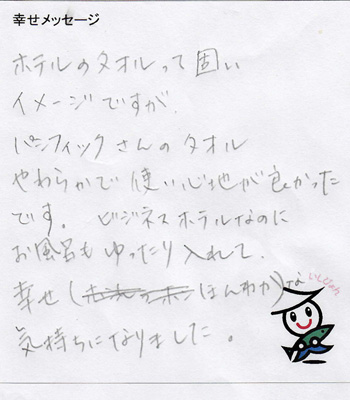 幸せメッセージ
ホテルのタオルって固い
イメージですが、
パシフィックさんのタオル
やわらかで使い心地が良かった
です。ビジネスホテルなのに
お風呂もゆったり入れて、
幸せ(ほんわか)な
気持ちになりました。